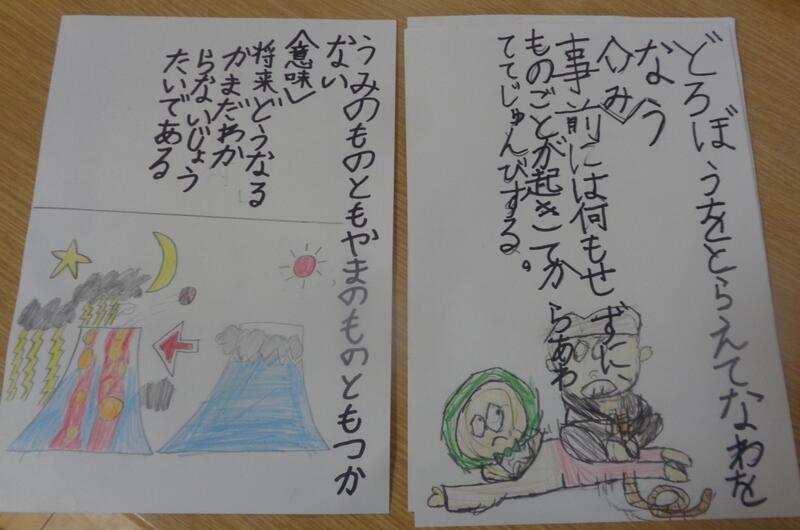 どろぼうをとらえてなわを
なう
〈いみ〉
事前には何もせずに、
ものごとが起きてからあわ
ててじゅんびする。
うみのものともやまのものともつか
ない
〈意味〉
将来どうなる
かまだわか
らないじょう
たいである